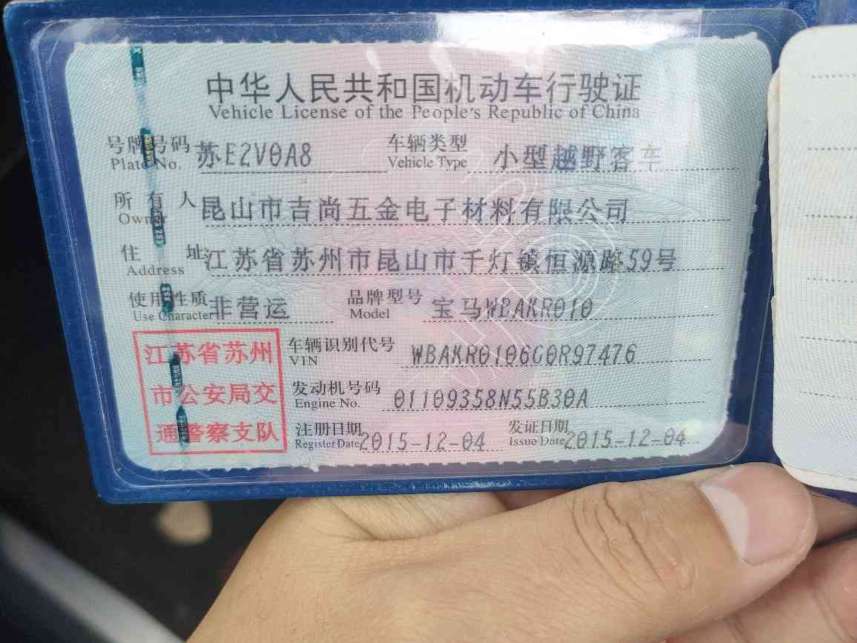 中华人民共和国机动车行驶证
Vehicle License of the People's Republic of China
号牌号码 苏E2V0A8 车辆类型 小型越野客车
Plate No. Vehicle Type
所有人 昆山市吉尚五金电子材料有限公司
Owner
住址 江苏省苏州市昆山市千灯镇恒源路59号
Address
使用性质 非营运 品牌型号 宝马WBAKR010
Use Character Model
江苏省苏州
市公安局交
通警察支队
车辆识别代号 WBAKR0106G0R97476
VIN
发动机号码 01109358N55B30A
Engine No.
注册日期 2015-12-04 发证日期 2015-12-04
Register Date Issue Date